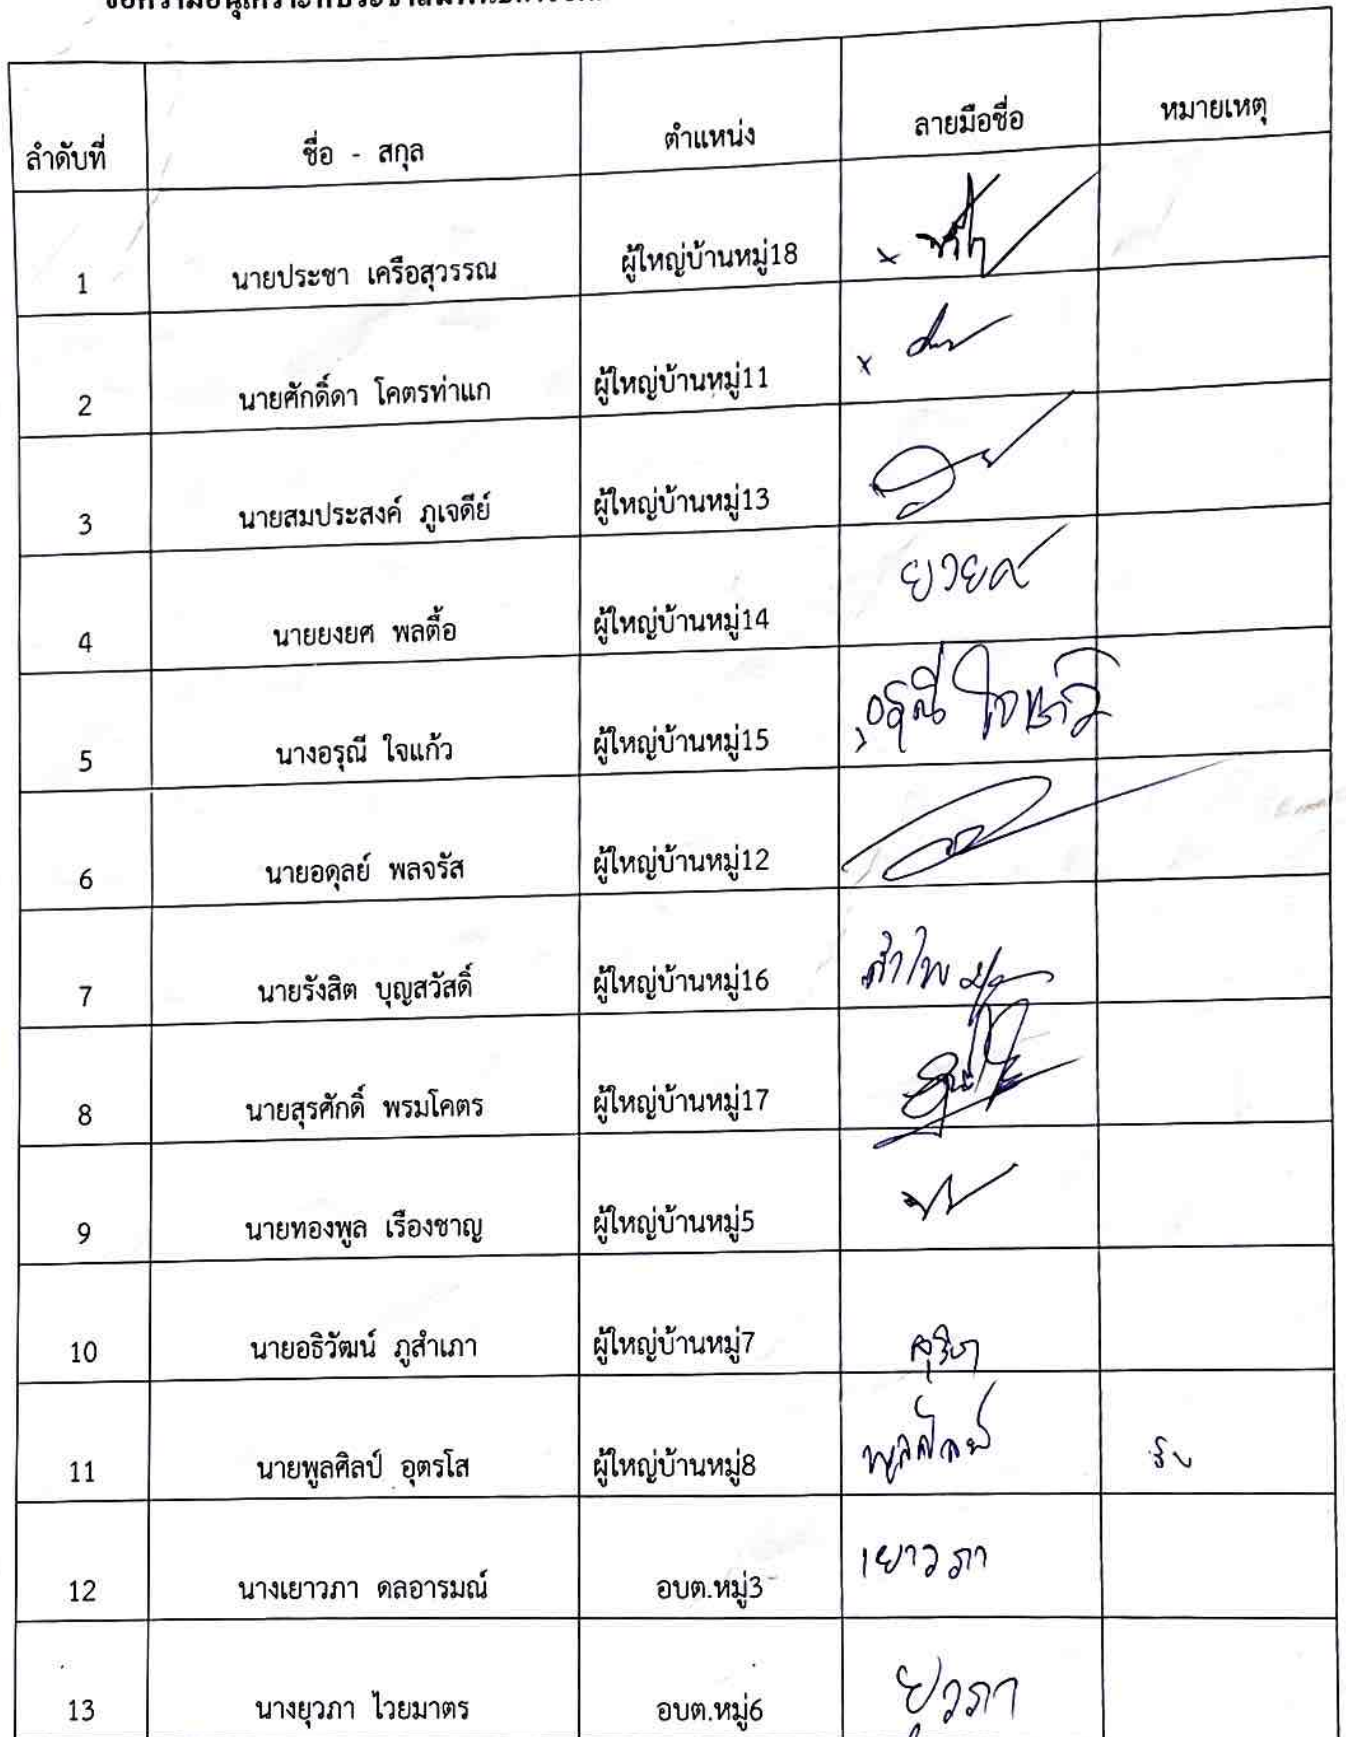 ลำดับที่ ชื่อ - สกุล ตำแหน่ง ลายมือชื่อ หมายเหตุ
1 นายประชา เครือสุวรรณ ผู้ใหญ่บ้านหมู่18
2 นายศักดิ์ดา โคตรท่าแก ผู้ใหญ่บ้านหมู่11
3 นายสมประสงค์ ภูเจดีย์ ผู้ใหญ่บ้านหมู่13
4 นายยงยศ พลตื้อ ผู้ใหญ่บ้านหมู่14
5 นางอรุณี ใจแก้ว ผู้ใหญ่บ้านหมู่15 อรุณี ใจแก้ว
6 นายอดุลย์ พลจรัส ผู้ใหญ่บ้านหมู่12
7 นายรังสิต บุญสวัสดิ์ ผู้ใหญ่บ้านหมู่16
8 นายสุรศักดิ์ พรมโคตร ผู้ใหญ่บ้านหมู่17
9 นายทองพูล เรืองชาญ ผู้ใหญ่บ้านหมู่5
10 นายอธิวัฒน์ ภูสำเภา ผู้ใหญ่บ้านหมู่7
11 นายพูลศิลป์ อุตรโส ผู้ใหญ่บ้านหมู่8 พูลศิลป์
12 นางเยาวภา ดลอารมณ์ อบต.หมู่3 เยาวภา
13 นางยุวภา ไวยมาตร อบต.หมู่6 ยุวภา